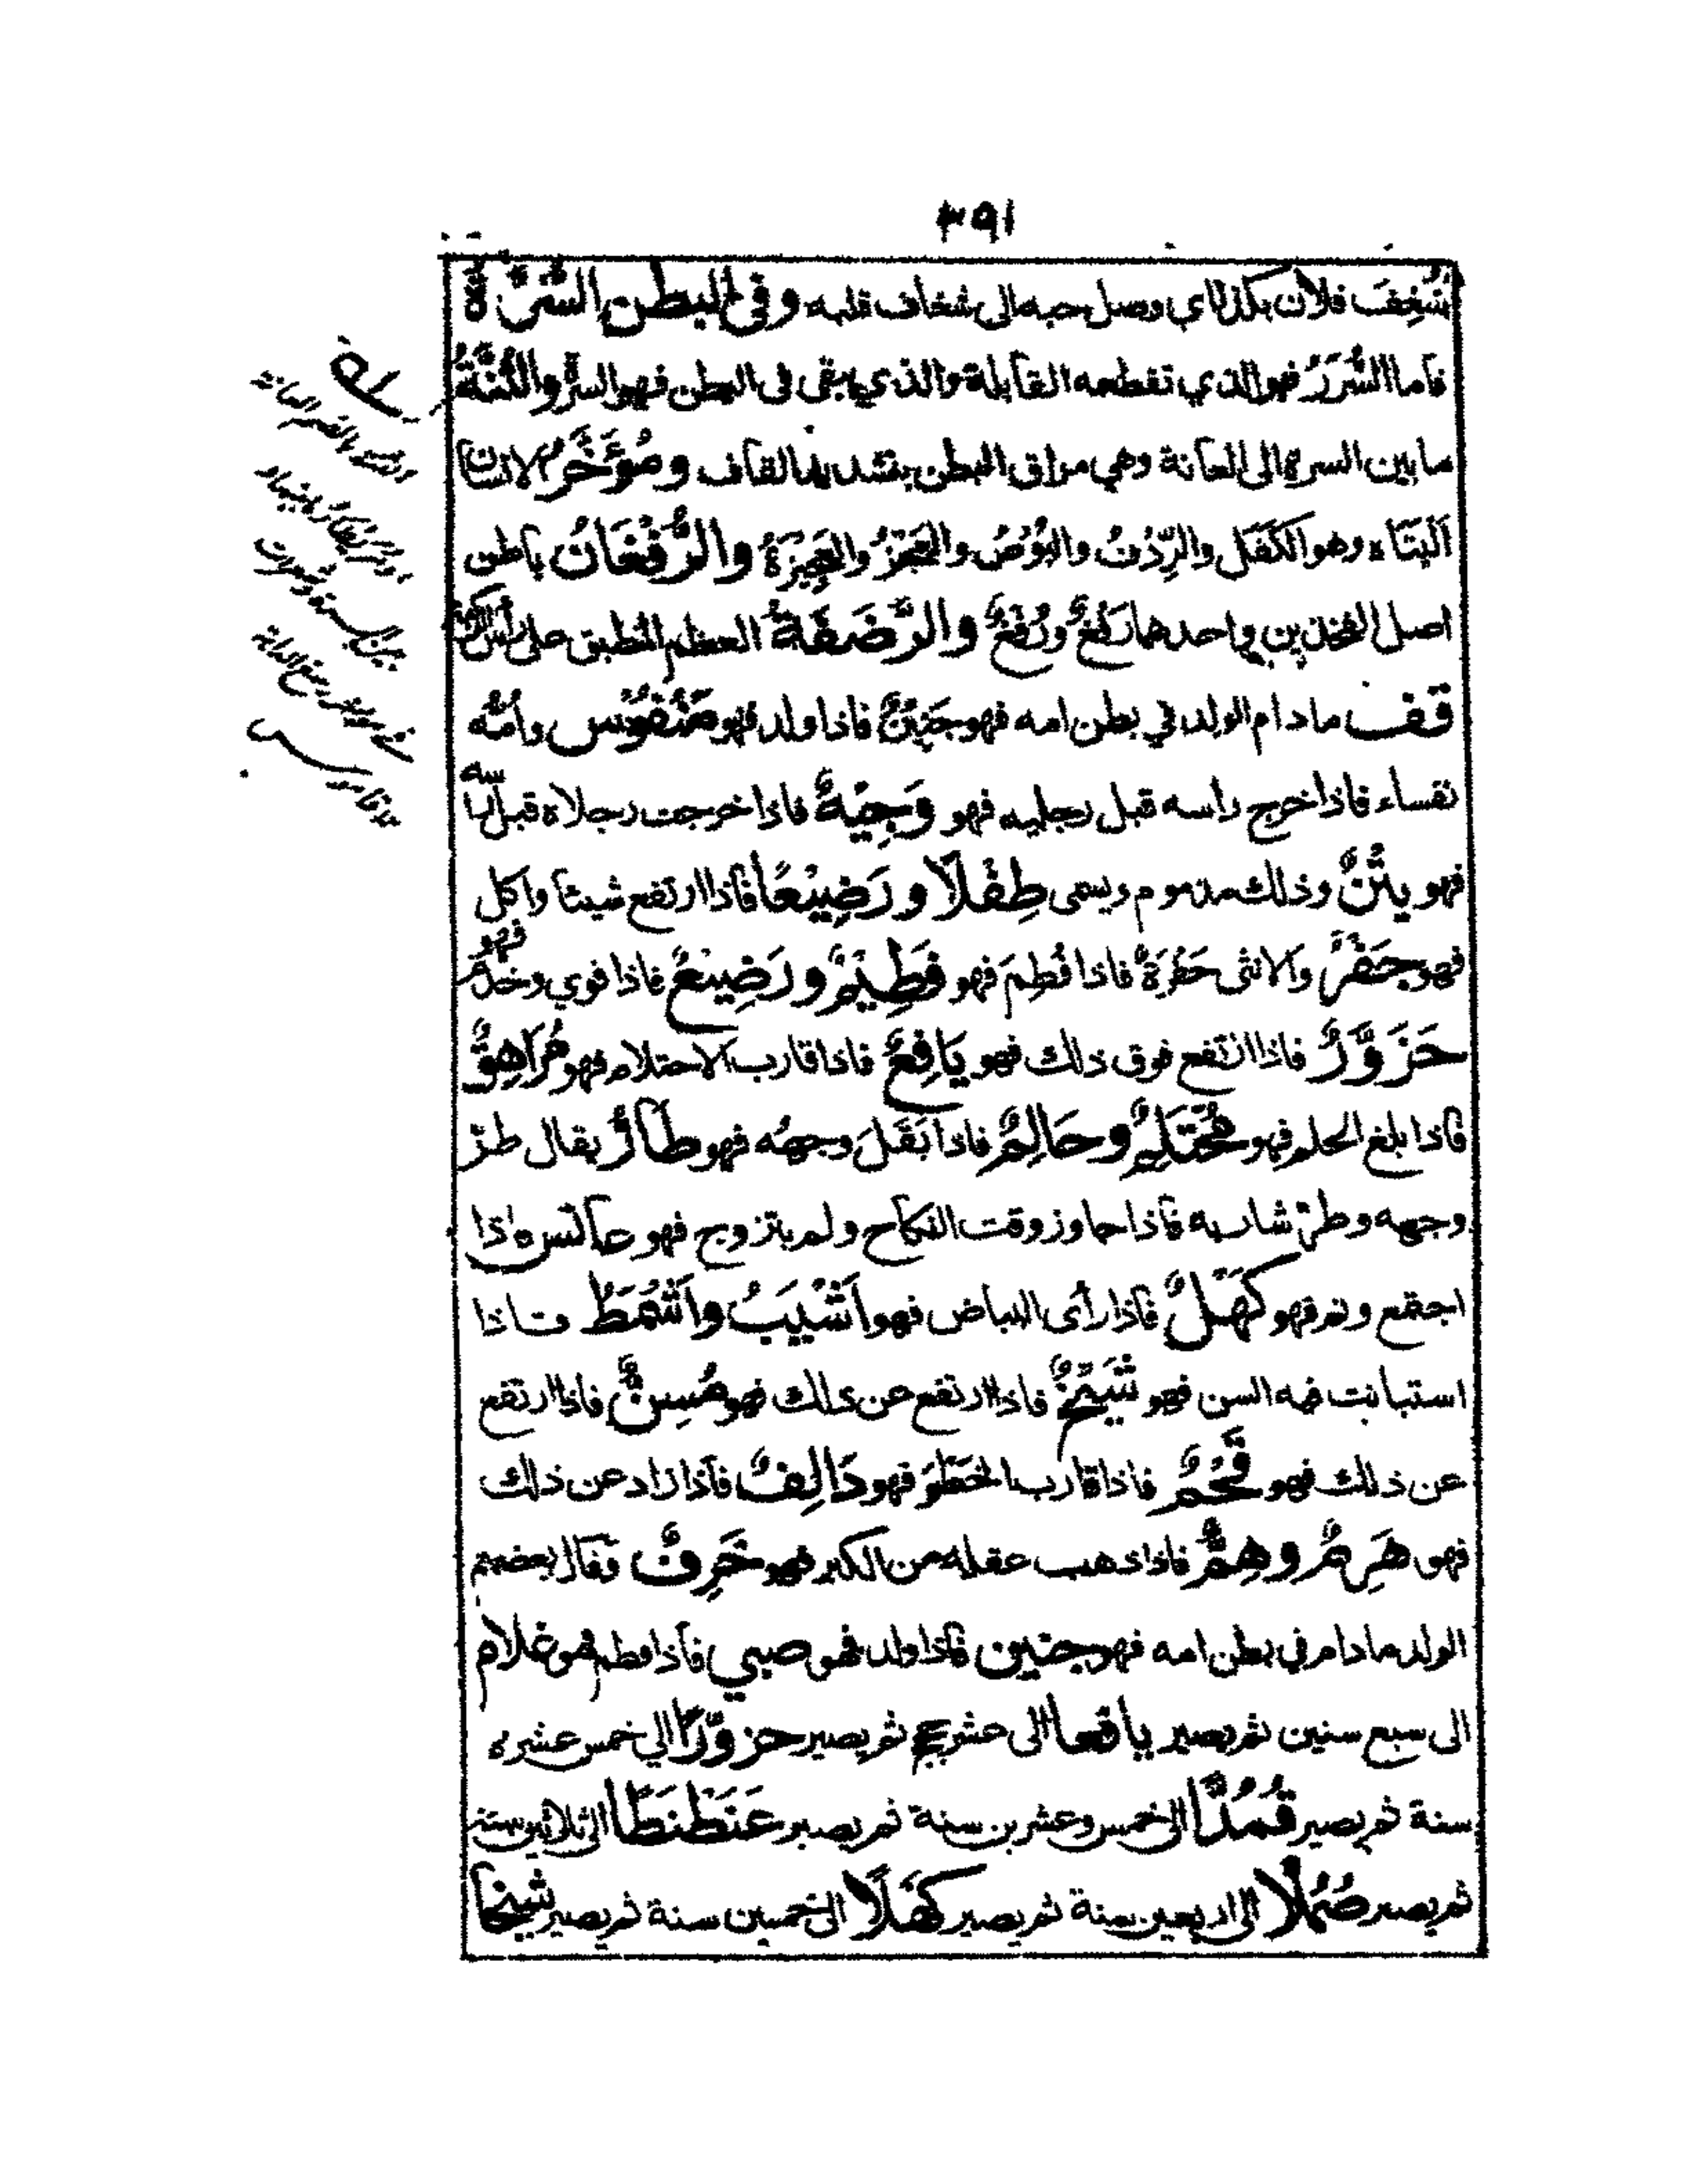 ٣٩١
شُغِفَ فلان بكذا اي وصل حبه الى شغاف قلبه وفي البطن السُّرَّةُ
فاما السُّرَرُ فهو الذي تقطعه القابلة والذي يبقى في البطن فهو السرة والثُّنَّةُ
ما بين السرة الى العانة وهي مراق البطن بتشديد القاف ومُؤَخَّرُ الانسان
اَلْيَتَاه وهو الكَفَل والرِّدْفُ والبُوْصُ والعَجُزُ والعَجِيزَةُ والرُّفْغَانُ باطن
اصل الفخذين واحدهما رَفْغٌ ورُفْغٌ والرَّضَفَةُ العظم المنطبق على رأس الركبة
قف ما دام الولد في بطن امه فهو جَنِيْنٌ فاذا ولد فهو مَنْفُوْس وأمُّه
نفساء فاذا خرج راسه قبل رجليه فهو وَجِيْهٌ فاذا خرجت رجلاه قبل راسه
فهو يَتْنٌ وذلك مذموم ويسمى طِفْلًا ورَضِيْعًا فاذا ارتفع شيئا واكل
فهو جَفْرٌ والانثى جَفْرَةٌ فاذا فُطِمَ فهو فَطِيْمٌ ورَضِيْعٌ فاذا قوي وخدم فهو
حَزَوَّرٌ فاذا ارتفع فوق ذلك فهو يَافِعٌ فاذا قارب الاحتلام فهو مُرَاهِقٌ
فاذا بلغ الحلم فهو مُحْتَلِمٌ وحَالِمٌ فاذا بَقَلَ وجهُه فهو طَارٌّ يقال طرّ
وجهه وطرّ شاربه فاذا جاوز وقت النكاح ولم يتزوج فهو عانس فاذا
اجتمع وتم فهو كَهْلٌ فاذا رأى البياض فهو اَشْيَبُ واَشْمَطُ فاذا
استبانت فيه السن فهو شَيْخٌ فاذا ارتفع عن ذلك فهو مُسِنٌّ فاذا ارتفع
عن ذلك فهو قَحْمٌ فاذا قارب الخَطْوَ فهو دَالِفٌ فاذا زاد عن ذلك
فهو هَرِمٌ وهِمٌّ فاذا ذهب عقله من الكبر فهو خَرِفٌ وقال بعضهم
الولد ما دام في بطن امه فهو جنين فاذا ولد فهو صبي فاذا فطم فهو غلام
الى سبع سنين ثم يصير يافعا الى عشر حجج ثم يصير حزوَّرًا الي خمس عشرة
سنة ثم يصير قُمُدًّا الى خمس وعشرين سنة ثم يصير عَنَطْنَطًا الى ثلاثين سنة
ثم يصير صُمُلًّا الى اربعين سنة ثم يصير كَهْلًا الى خمسين سنة ثم يصير شيخا